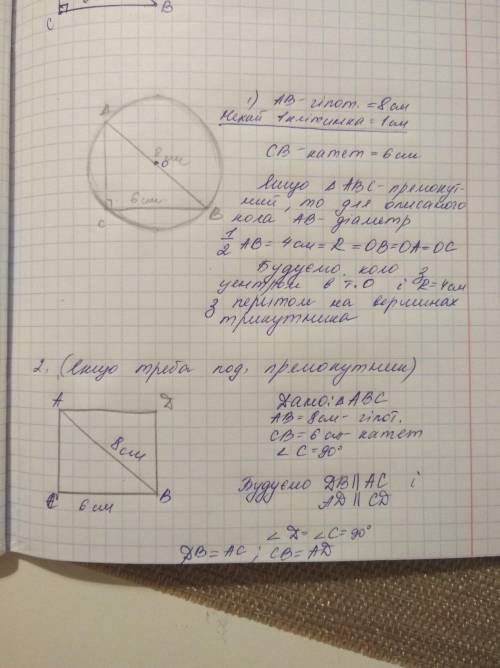 C
B
A
8см
O
6см
C
B
1) AB - гіпот. = 8см
Нехай 1 клітинка = 1см
CB - катет = 6см
Якщо △ABC - прямокут-
ний, то для описаного
кола AB - діаметр
1/2 AB = 4см = R = OB = OA = OC
Будуємо коло з
центром в т. O і R = 4см
з перитом на вершинах
трикутника
2. (якщо треба под. прямокутник)
A
D
8см
C
B
6см
Дано: △ABC
AB = 8см - гіпот.
CB = 6см - катет
∠C = 90°
Будуємо DB || AC і
AD || CD
∠D = ∠C = 90°
DB = AC ; CB = AD